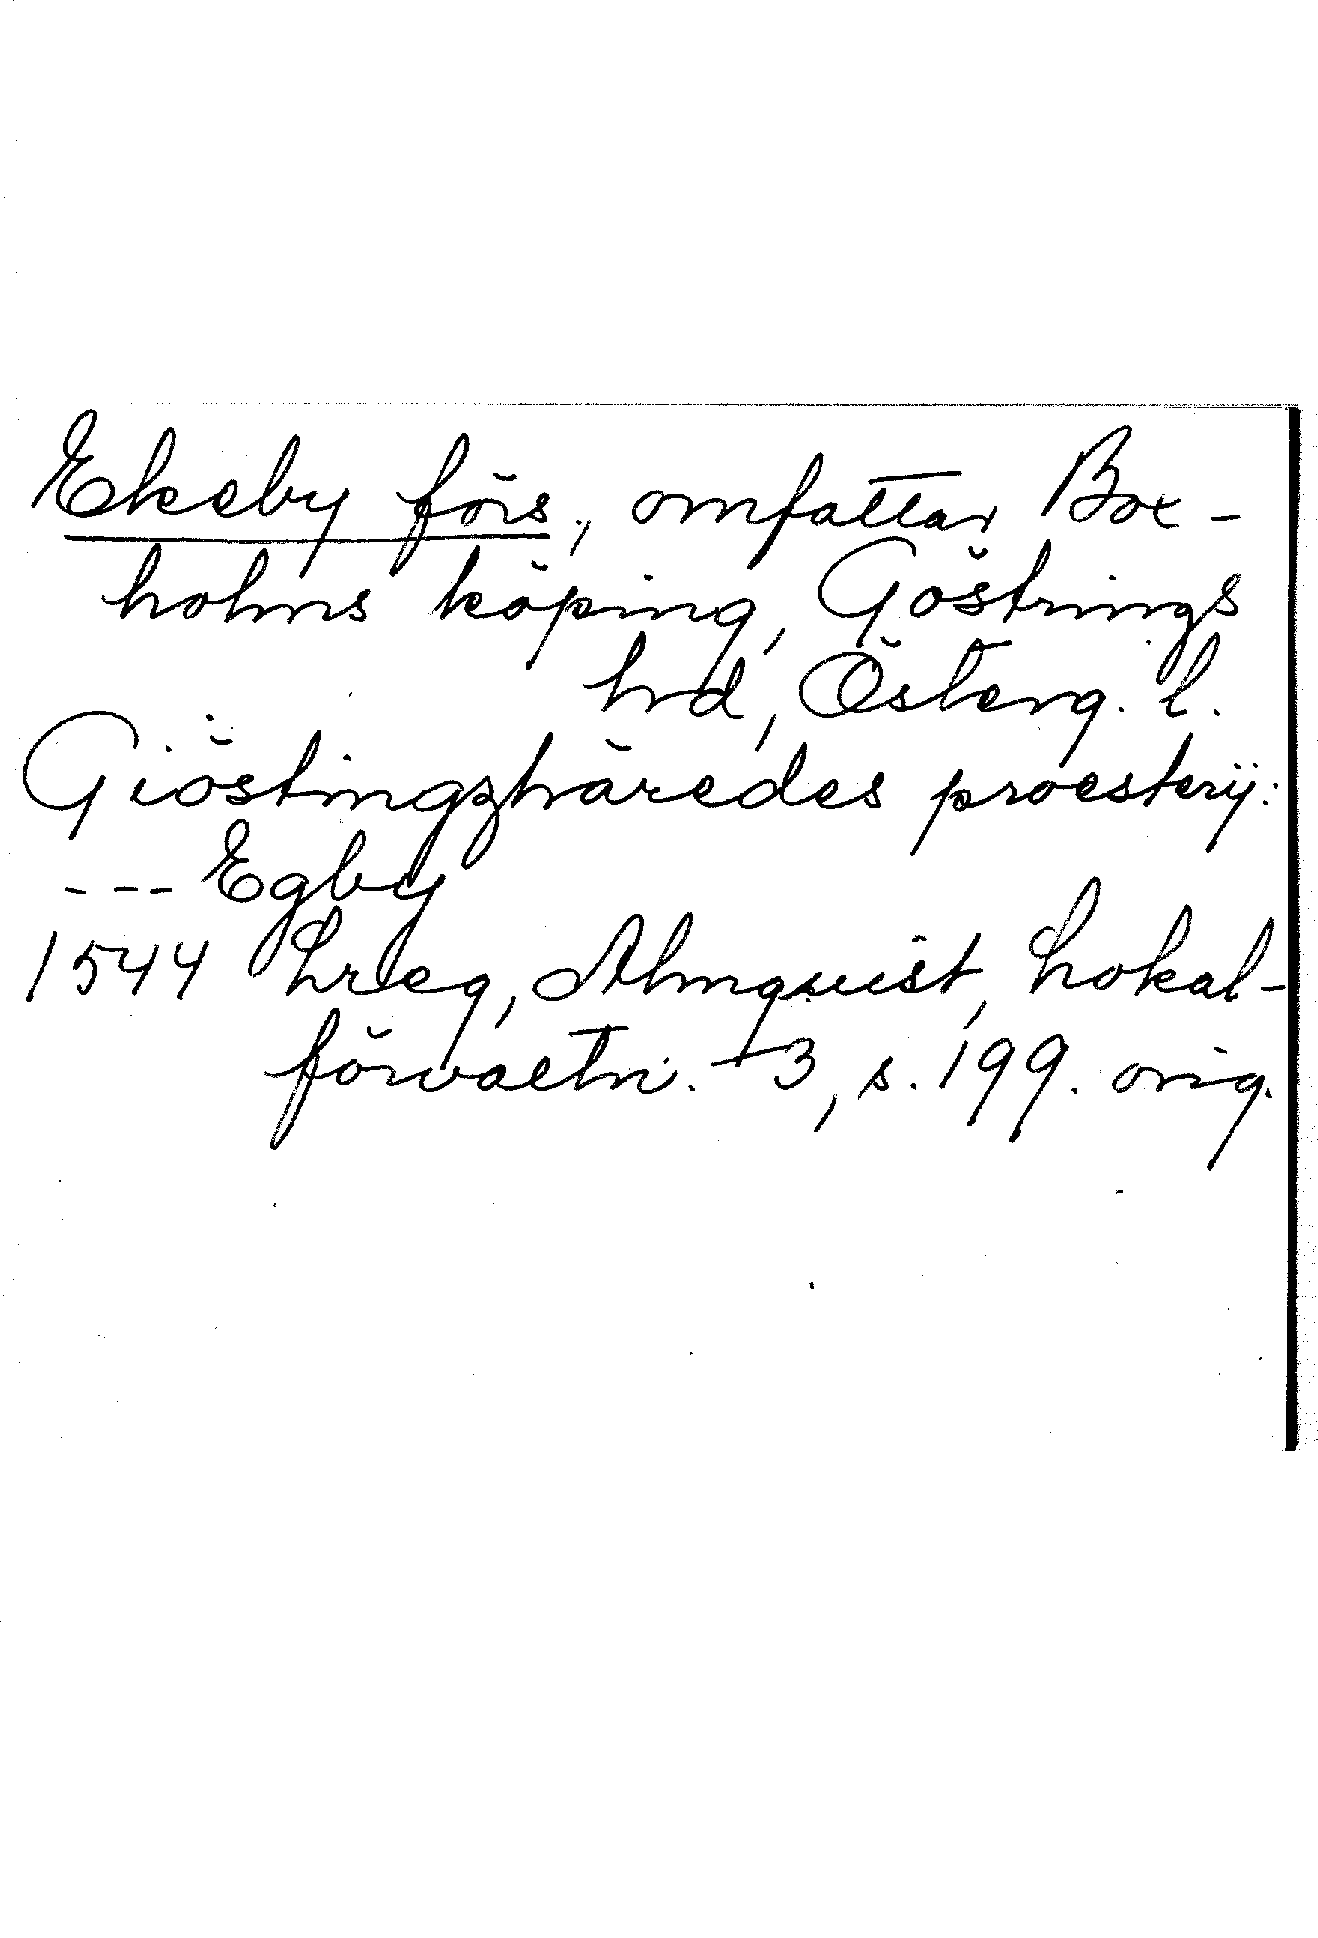 Ekeby förs, omfattar Box-
holms köping, Göstrings
hd, Österg. l.
Giöstingzhäredes proesterij:
--- Egby
1544 Lreg, Almquist, Lokal-
förvaltn. 3, s. 199. orig.